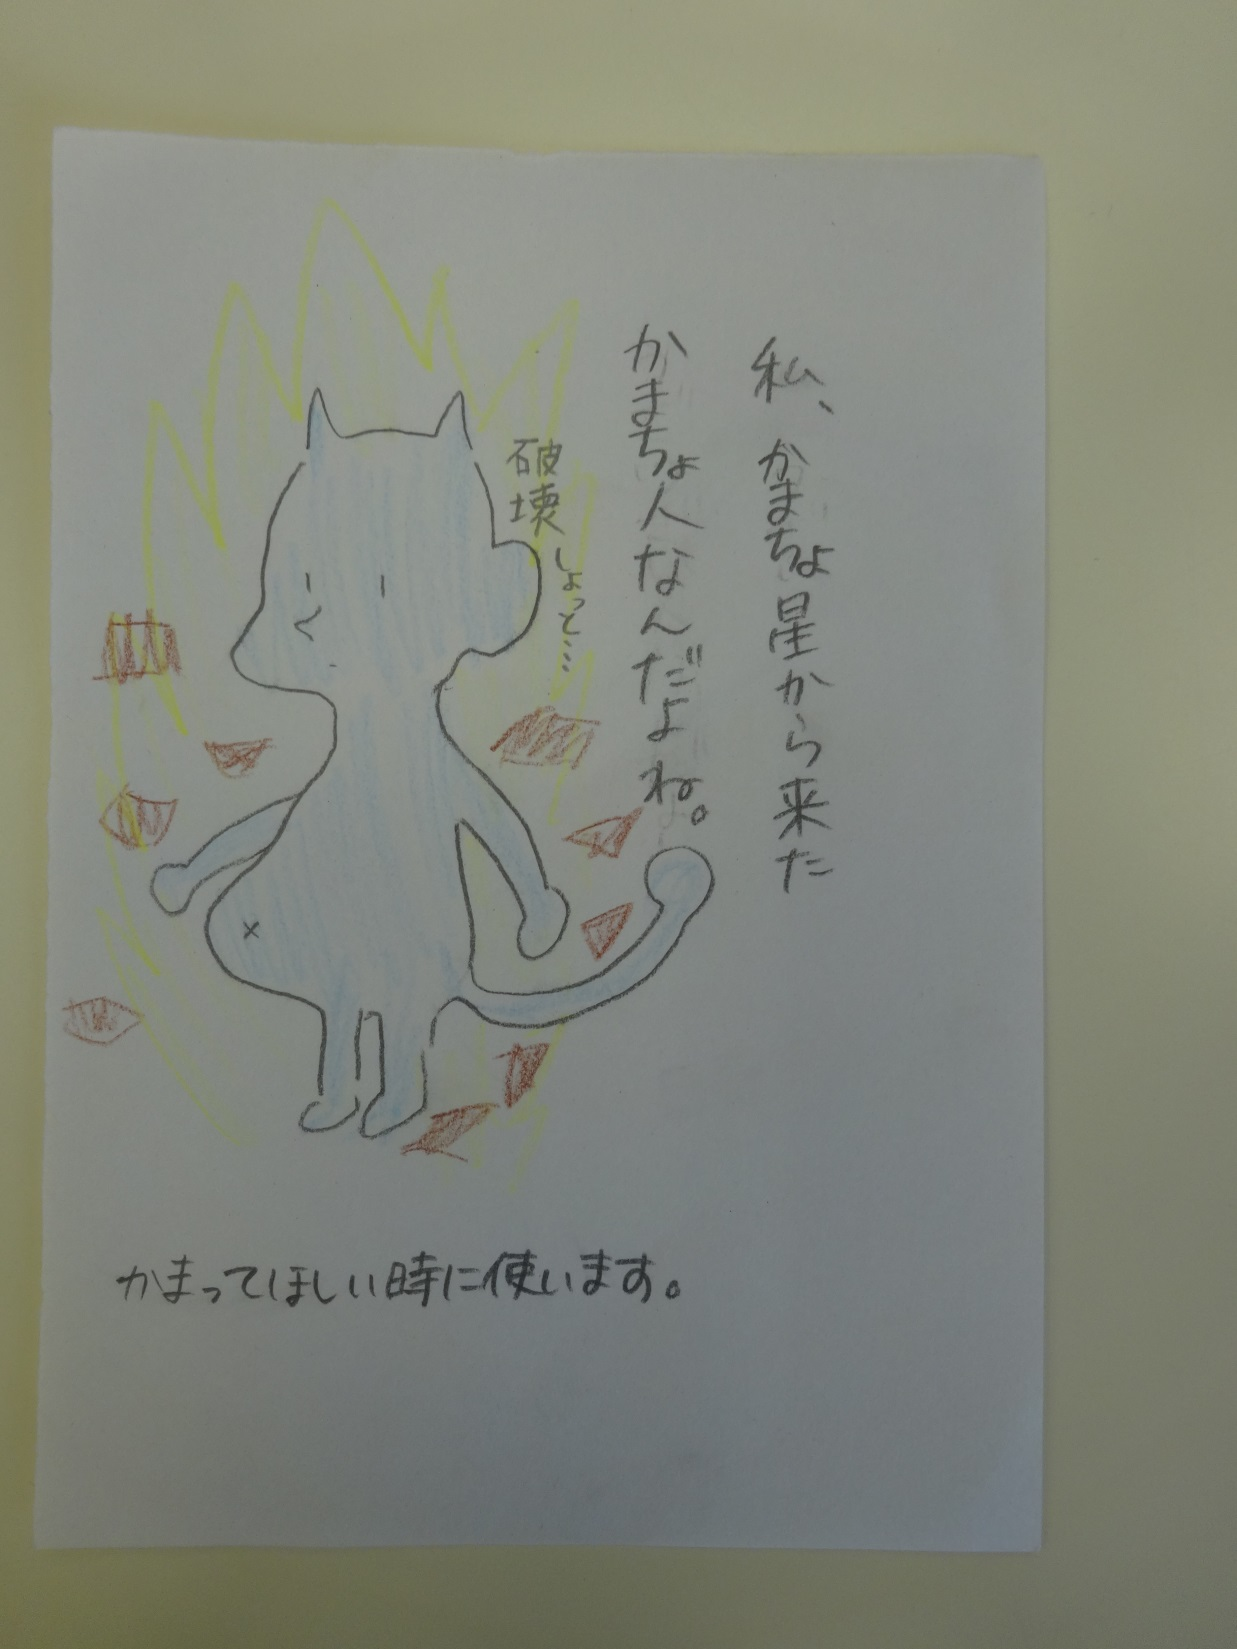 私、かまちょ星から来た
かまちょ人なんだよね。
破壊しよっと…
かまってほしい時に使います。